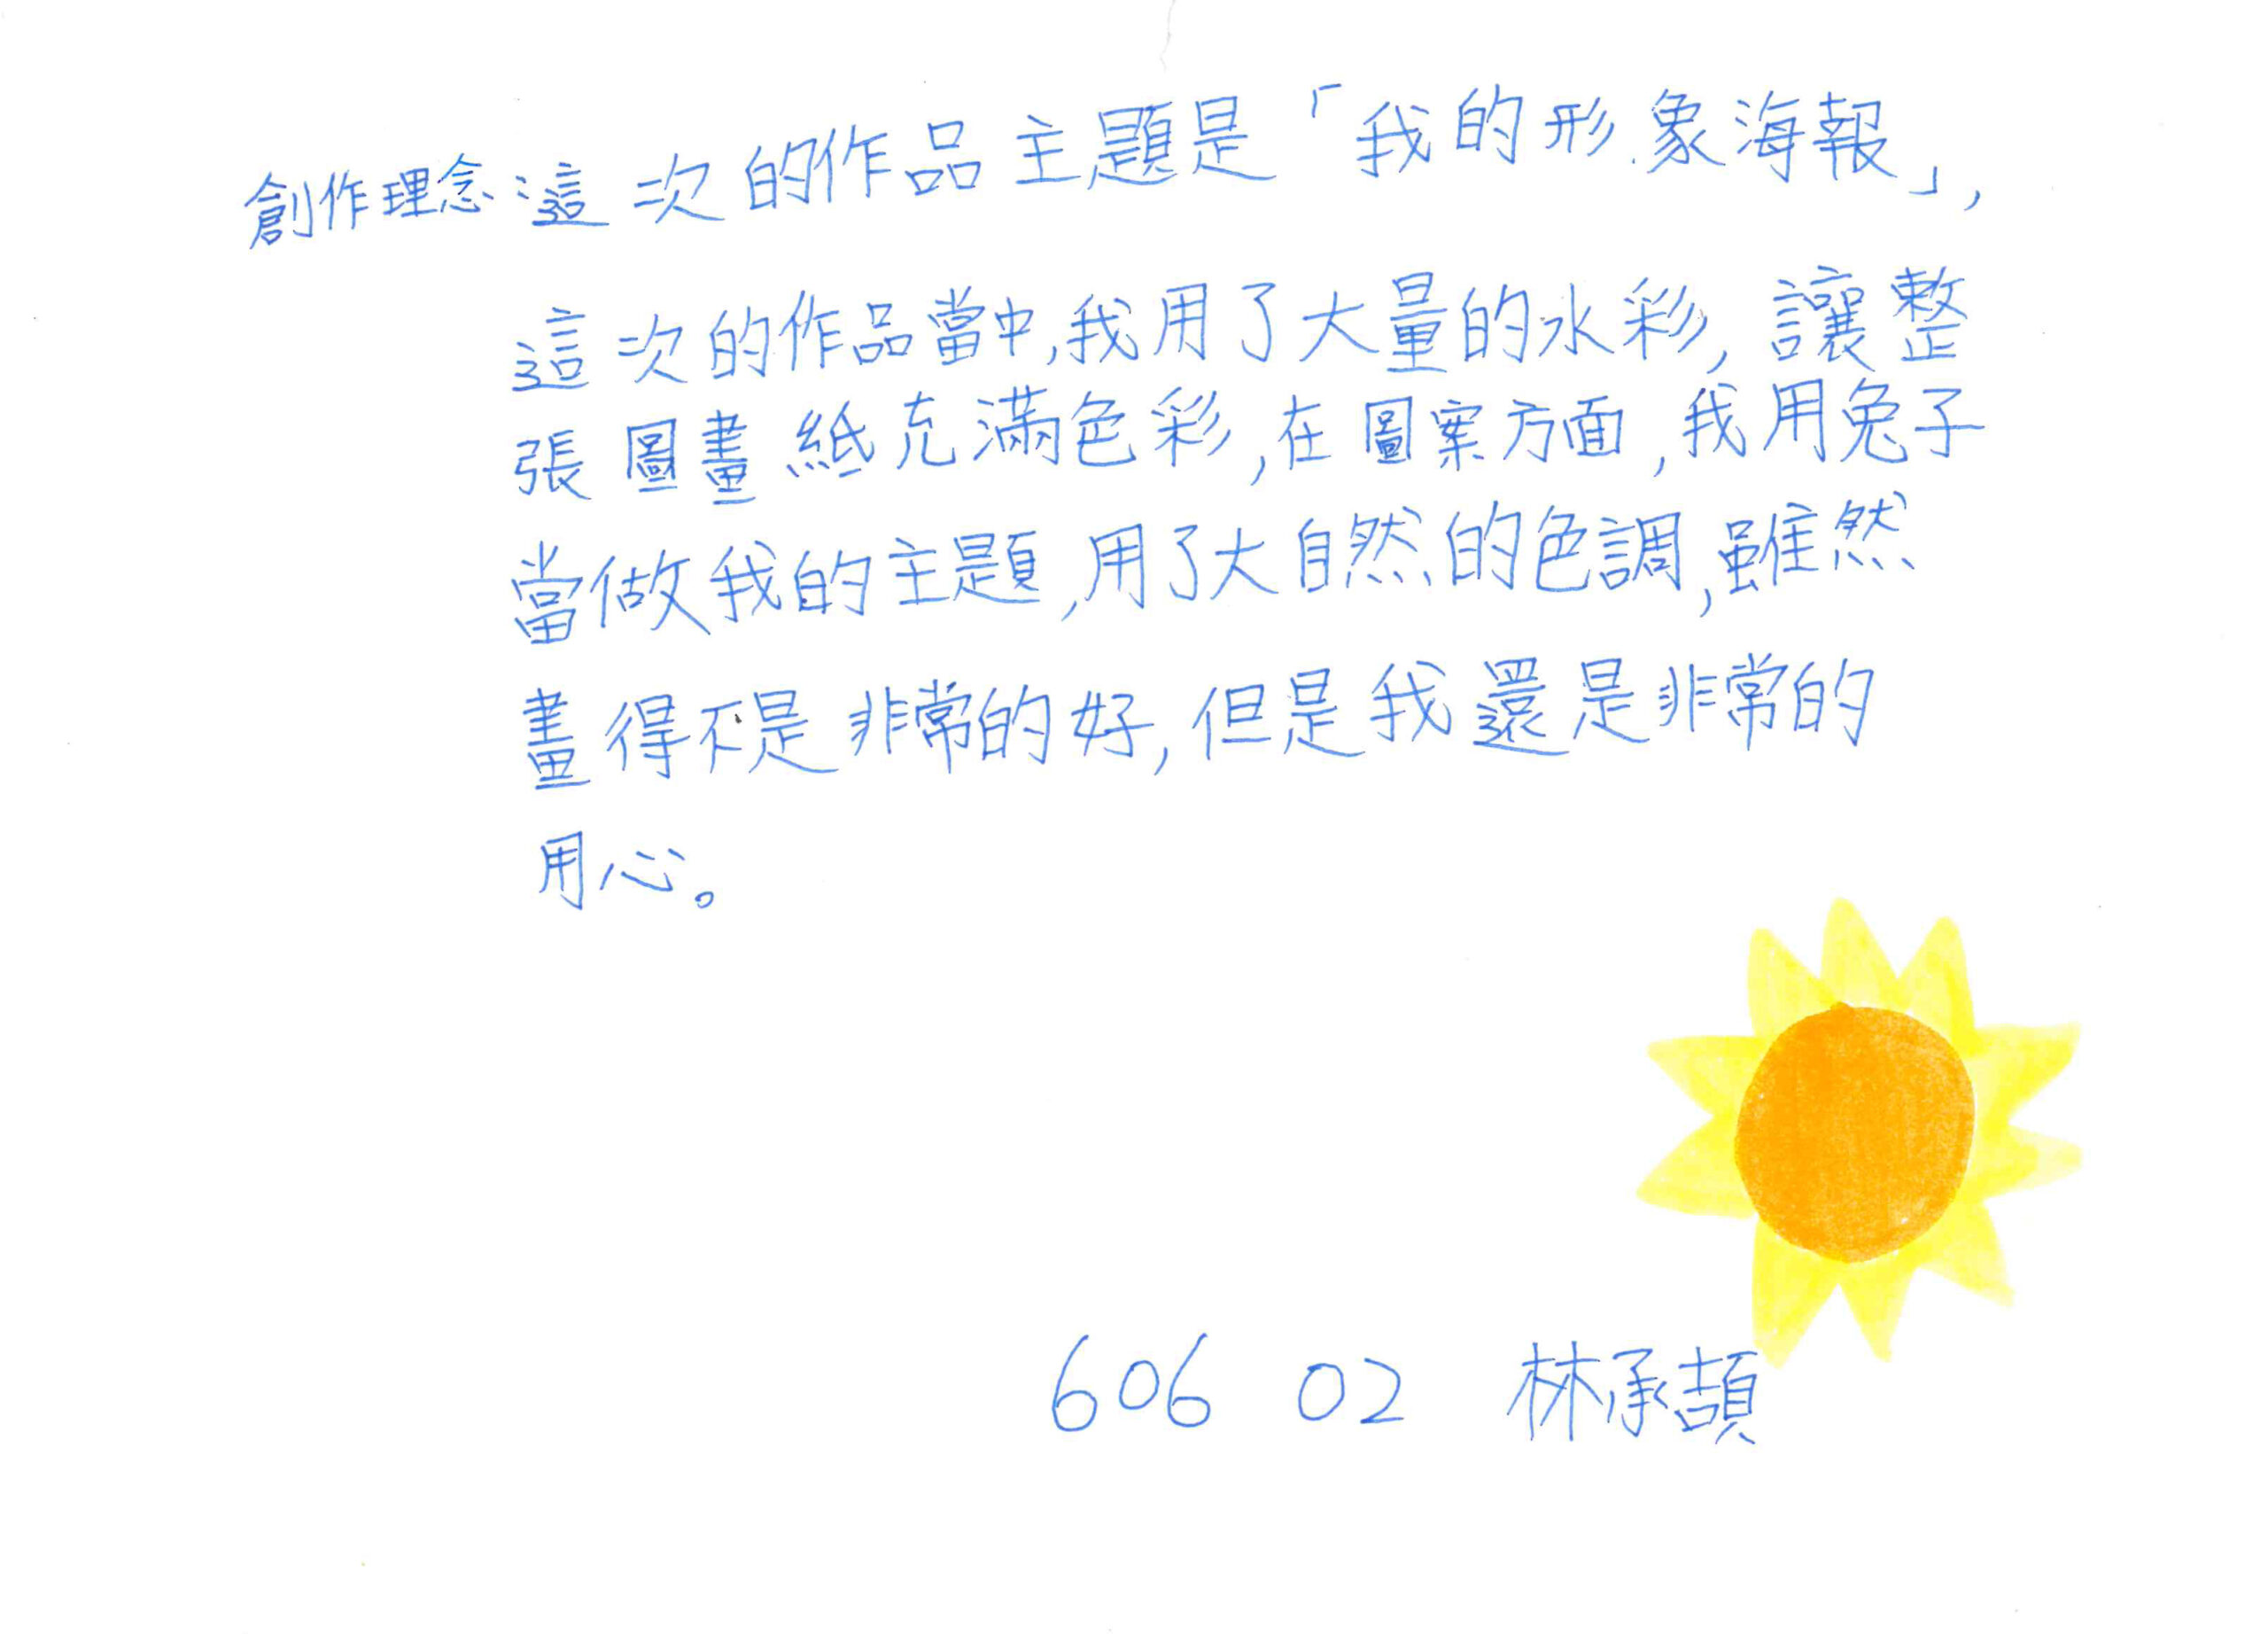 創作理念:這次的作品主題是「我的形象海報」,
這次的作品當中,我用了大量的水彩,讓整
張圖畫紙充滿色彩,在圖案方面,我用兔子
當做我的主題,用了大自然的色調,雖然
畫得不是非常的好,但是我還是非常的
用心。
606 02 林承頡